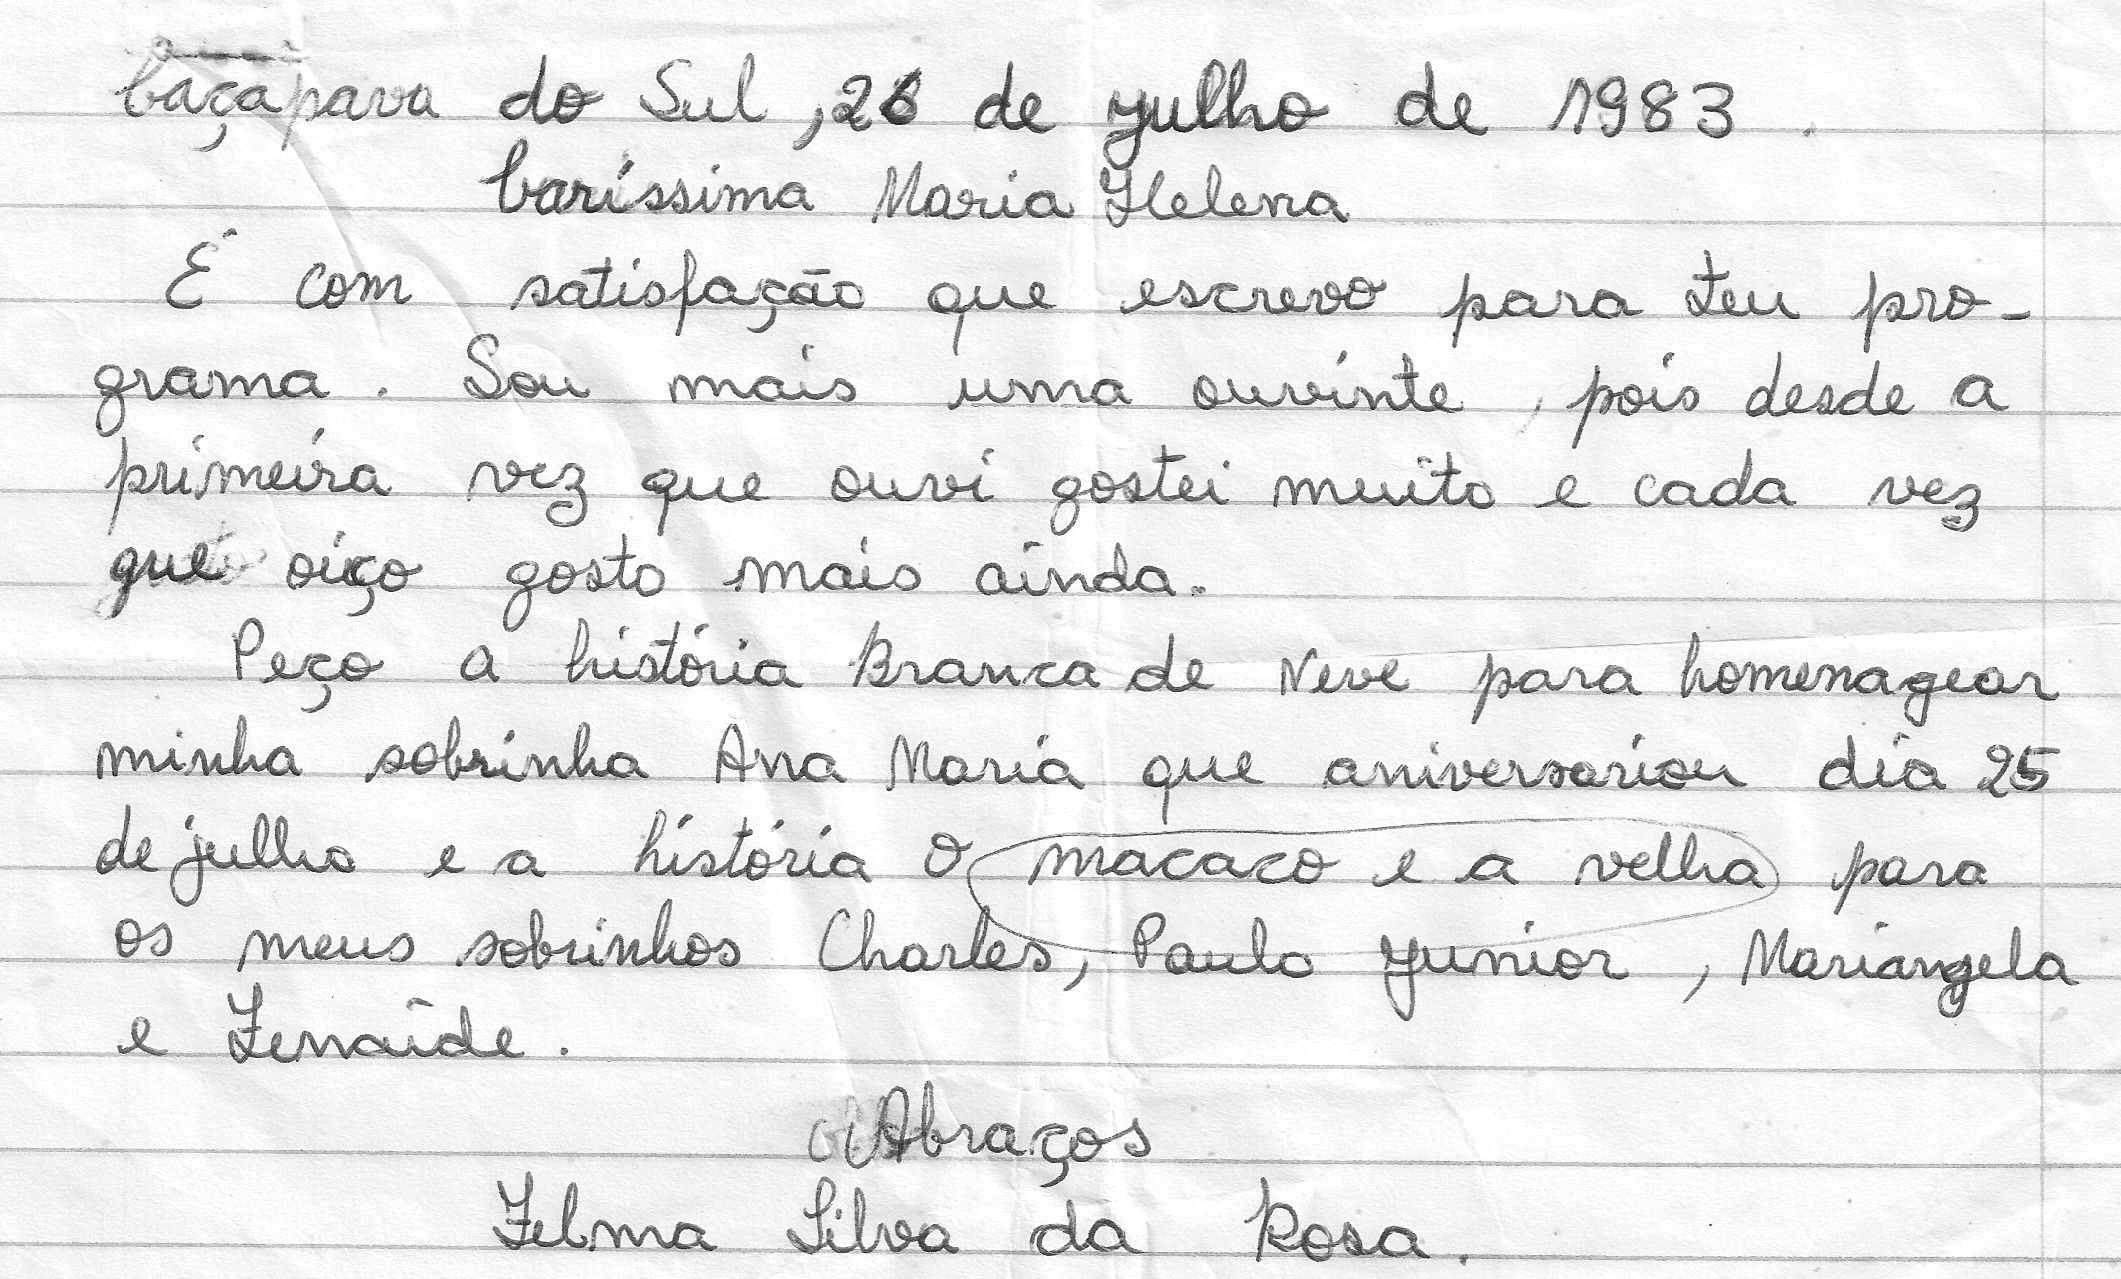 Caçapava do Sul, 26 de julho de 1983.
Caríssima Maria Helena
É com satisfação que escrevo para teu pro-
grama. Sou mais uma ouvinte, pois desde a
primeira vez que ouvi gostei muito e cada vez
que oiço gosto mais ainda.
Peço a história Branca de Neve para homenagear
minha sobrinha Ana Maria que aniversariou dia 25
de julho e a história O macaco e a velha para
os meus sobrinhos Charles, Paulo Junior, Mariangela
e Zenaide.
Abraços
Zelma Silva da Rosa.